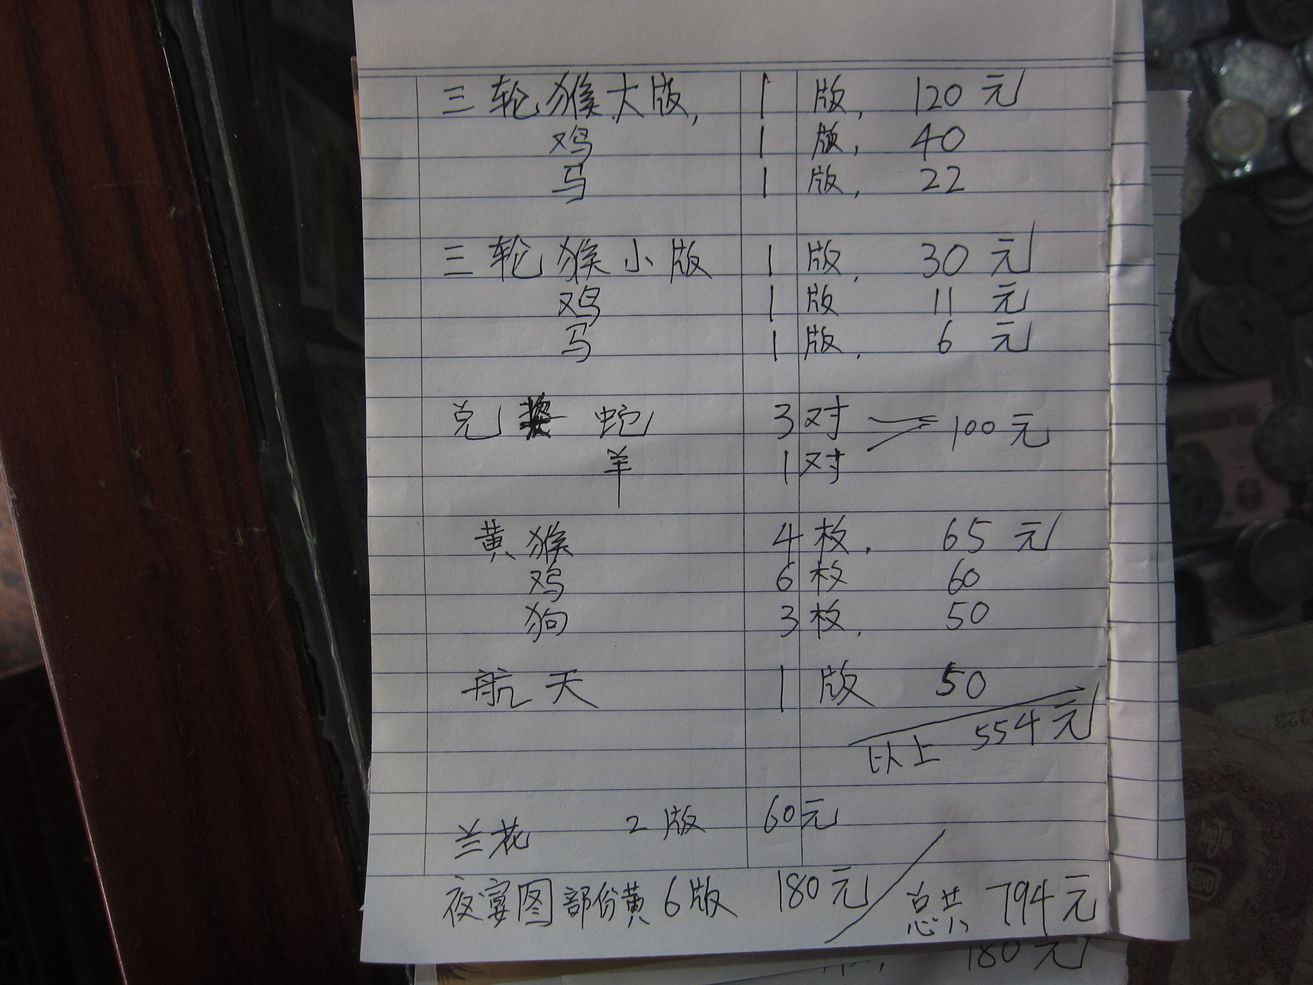 三轮猴大版, 1 版, 120元
鸡 1 版, 40
马 1 版, 22
三轮猴小版 1 版, 30元
鸡 1 版 11元
马 1 版, 6元
兑奖 蛇 3对 100元
羊 1对
黄猴 4枚, 65元
鸡 6枚 60
狗 3枚, 50
航天 1版 50
以上 554元
兰花 2版 60元
夜宴图部份黄6版 180元 总共 794元
180元